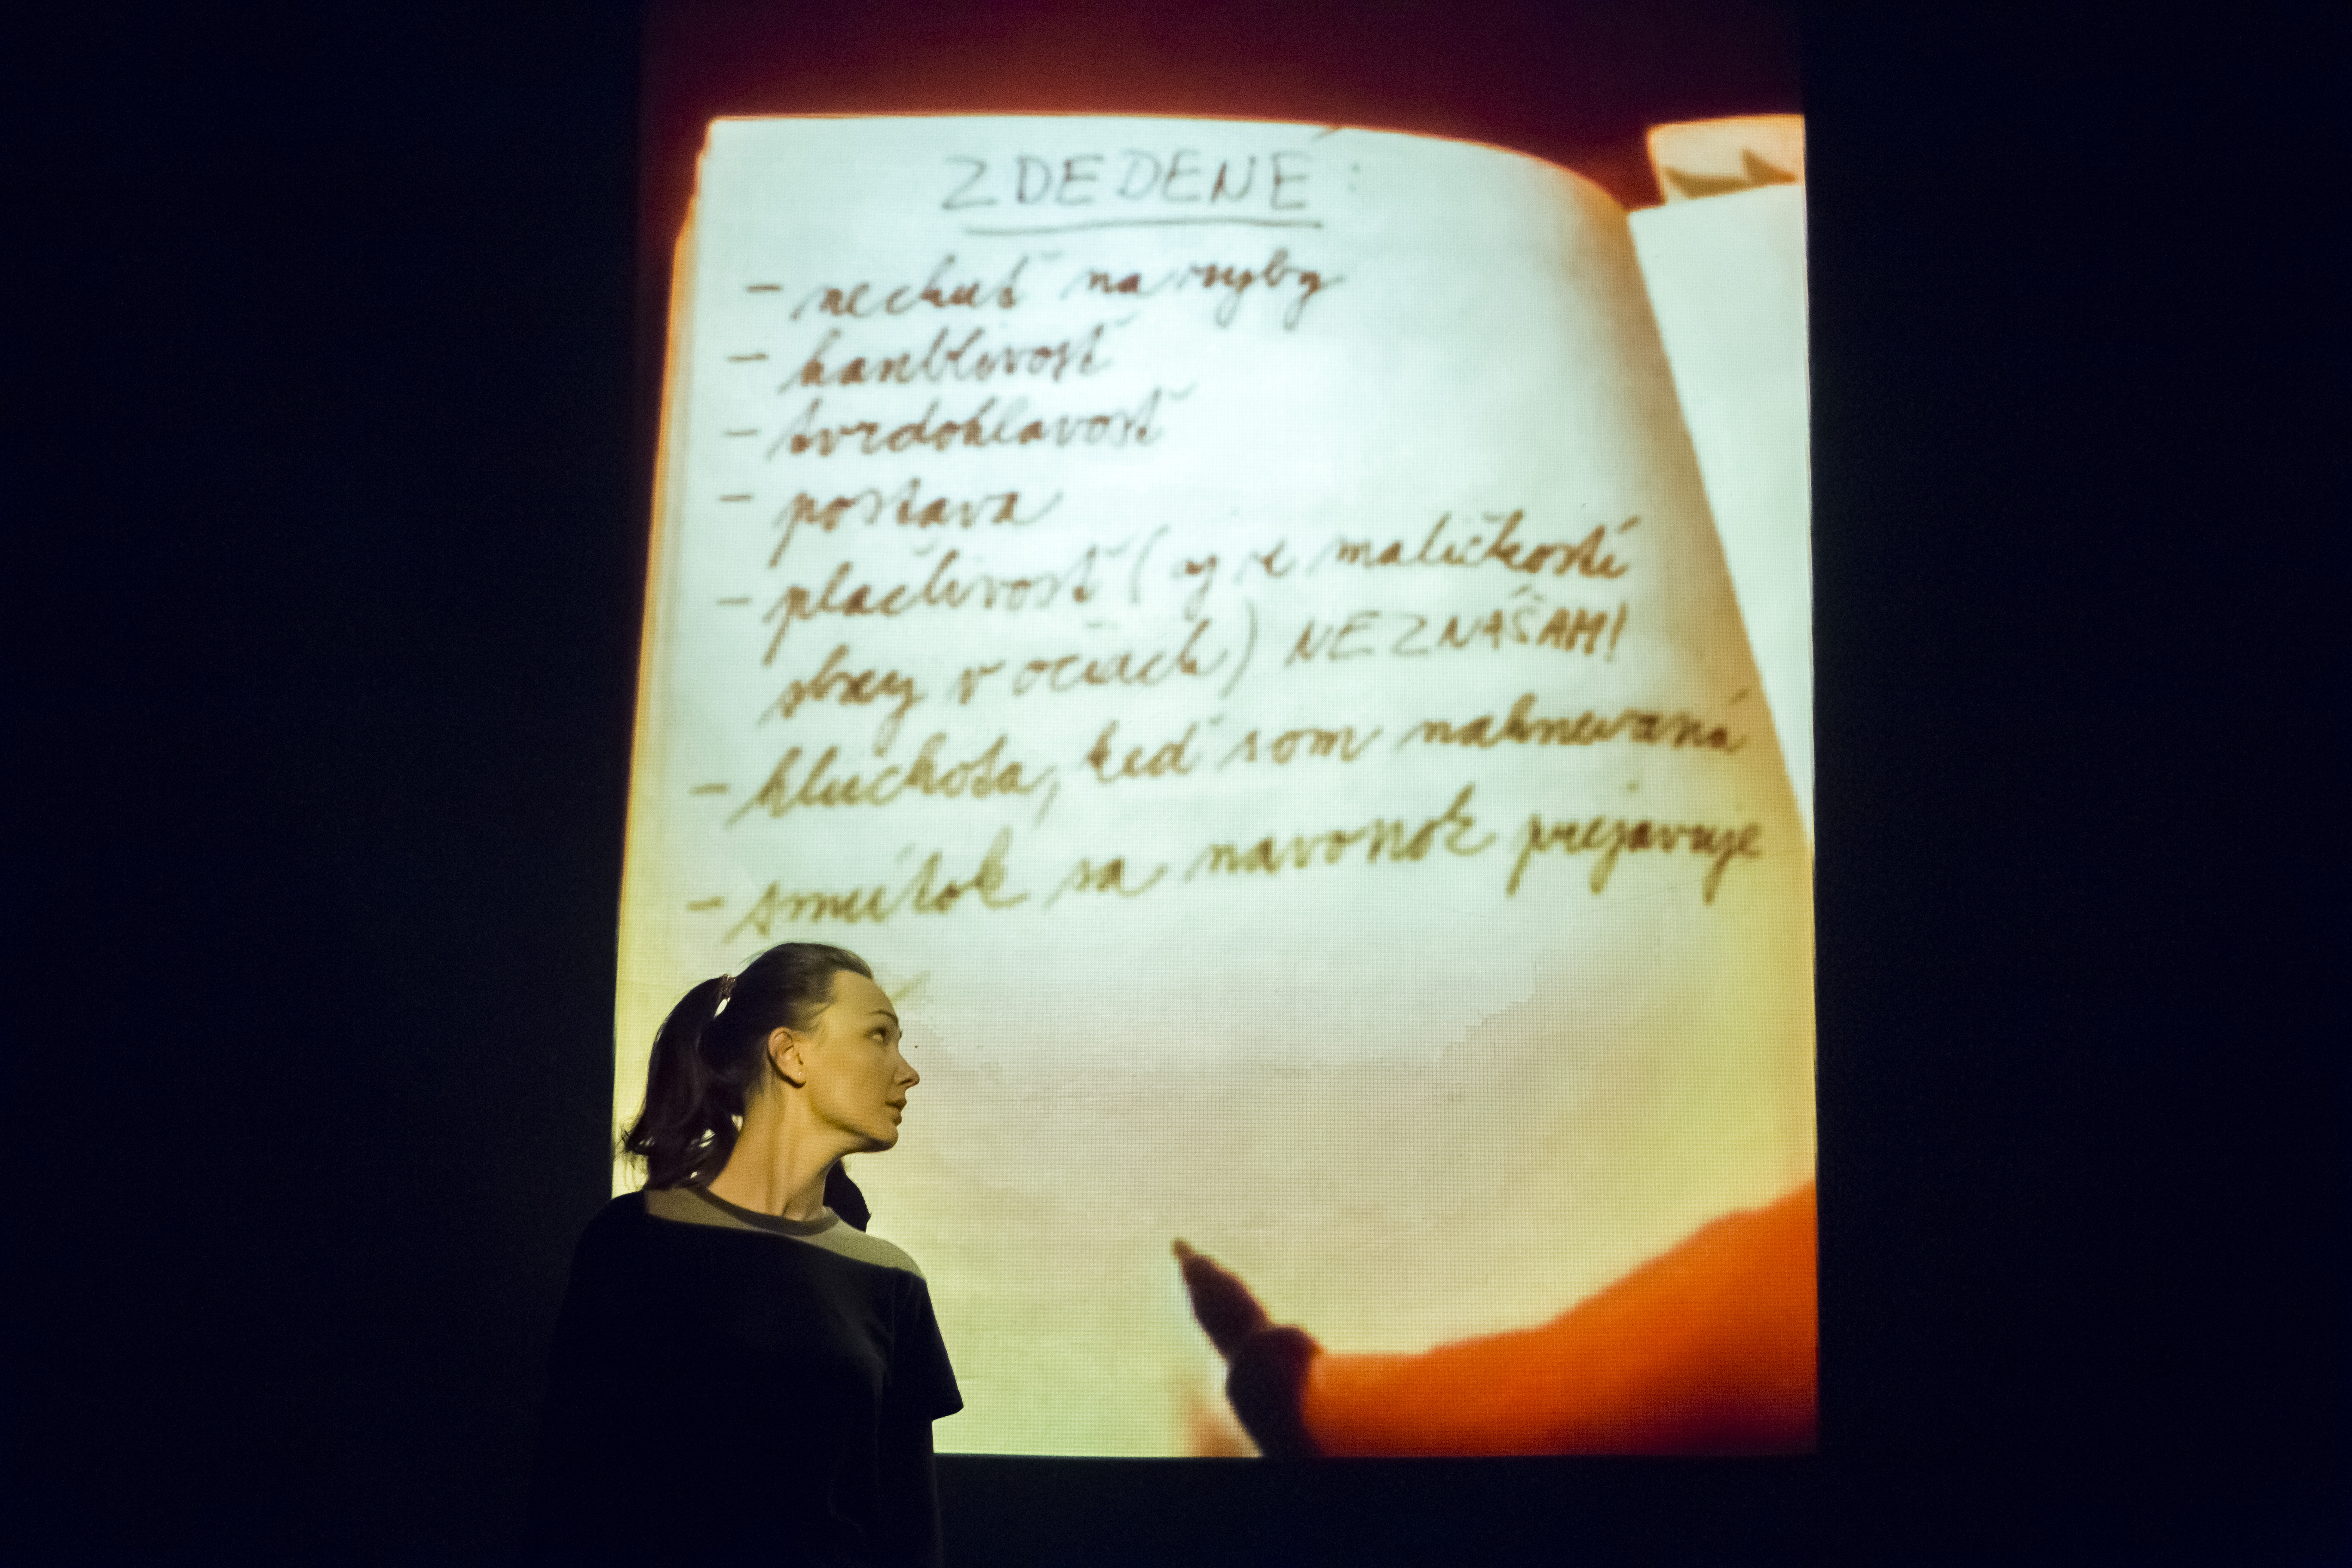 ZDEDENÉ:
- nechuť na ryby
- hanblivosť
- tvrdohlavosť
- postava
- plačlivosť (aj pre maličkosti
slzy v očiach) NEZNÁŠAM!
- hluchota, keď som nahnevaná
- smútok sa navonok prejavuje